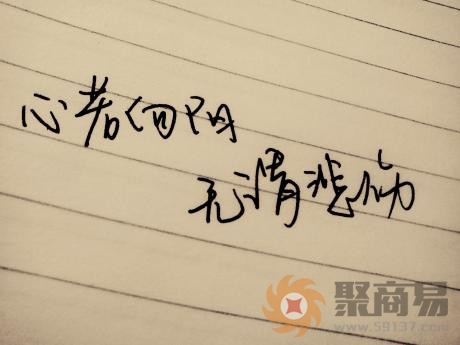 心若向阳
无谓悲伤
聚商易
www.59137.com